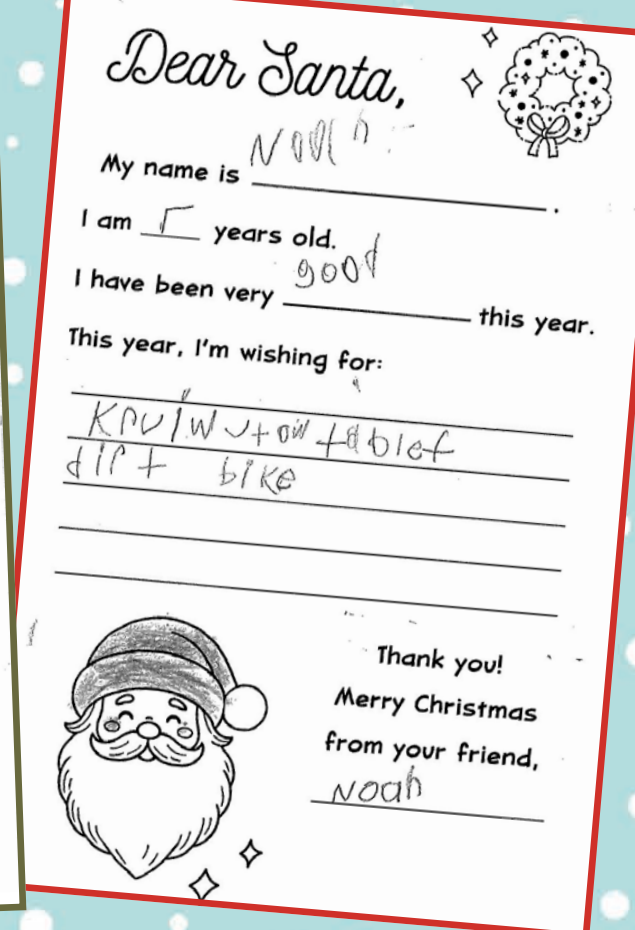 Dear Santa,
My name is Noah.
I am 5 years old.
I have been very good this year.
This year, I'm wishing for:
tablet
dirt bike
Thank you!
Merry Christmas
from your friend,
Noah